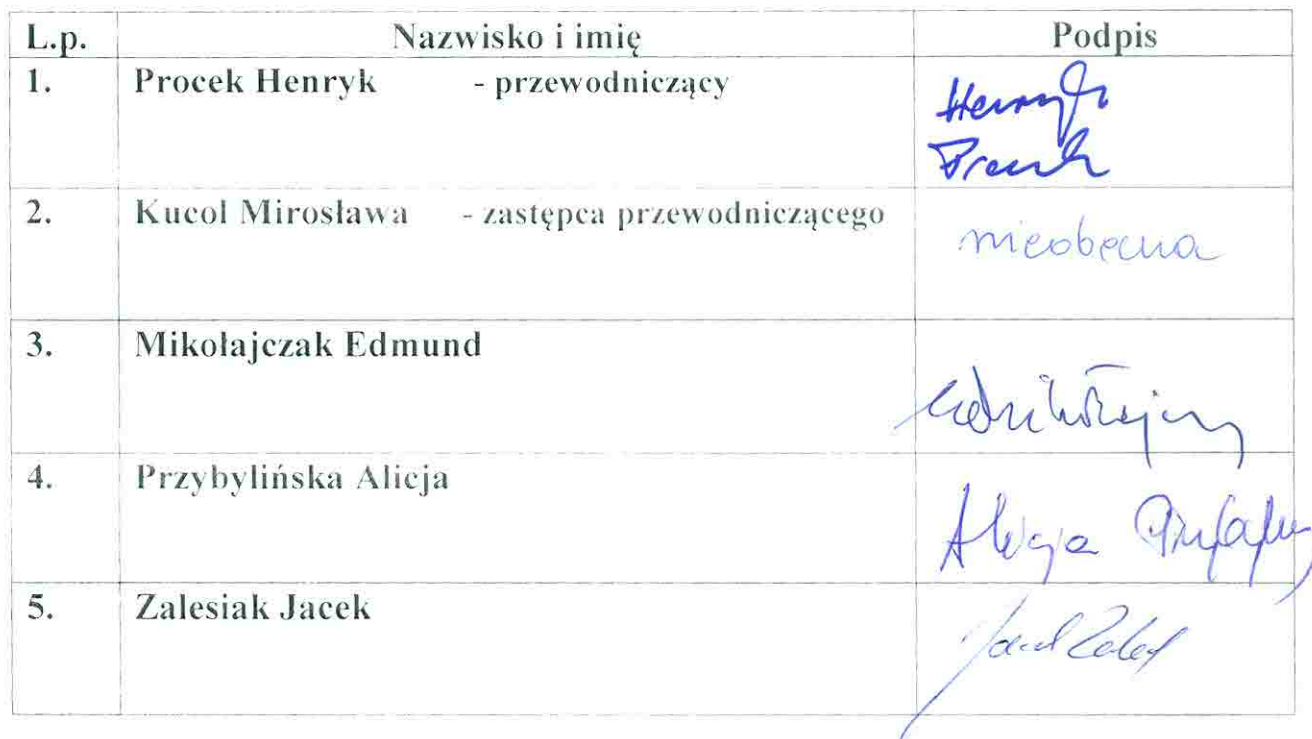 L.p. Nazwisko i imię Podpis
1. Procek Henryk - przewodniczący
Henryk
Procek
2. Kucol Mirosława - zastępca przewodniczącego
nieobecna
3. Mikołajczak Edmund
4. Przybylińska Alicja
Alicja
5. Zalesiak Jacek
Jacek